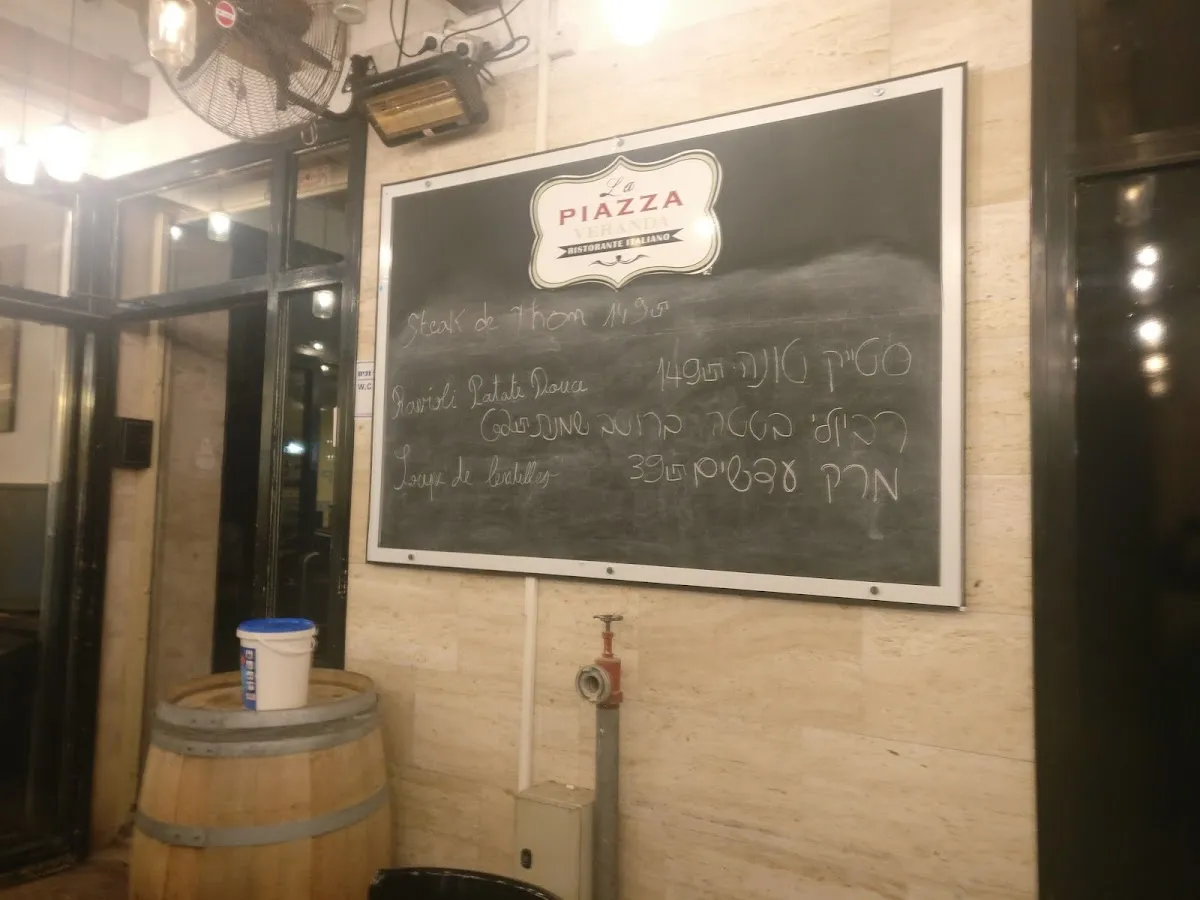 La
PIAZZA
VERANDA
RISTORANTE ITALIANO
Steak de Thon 149 ש״ח
סטייק טונה 149 ש״ח
Ravioli Patate Douce
רביולי בטטה ברוטב שמנת
Soupe de lentilles
מרק עדשים 39 ש״ח
W.C